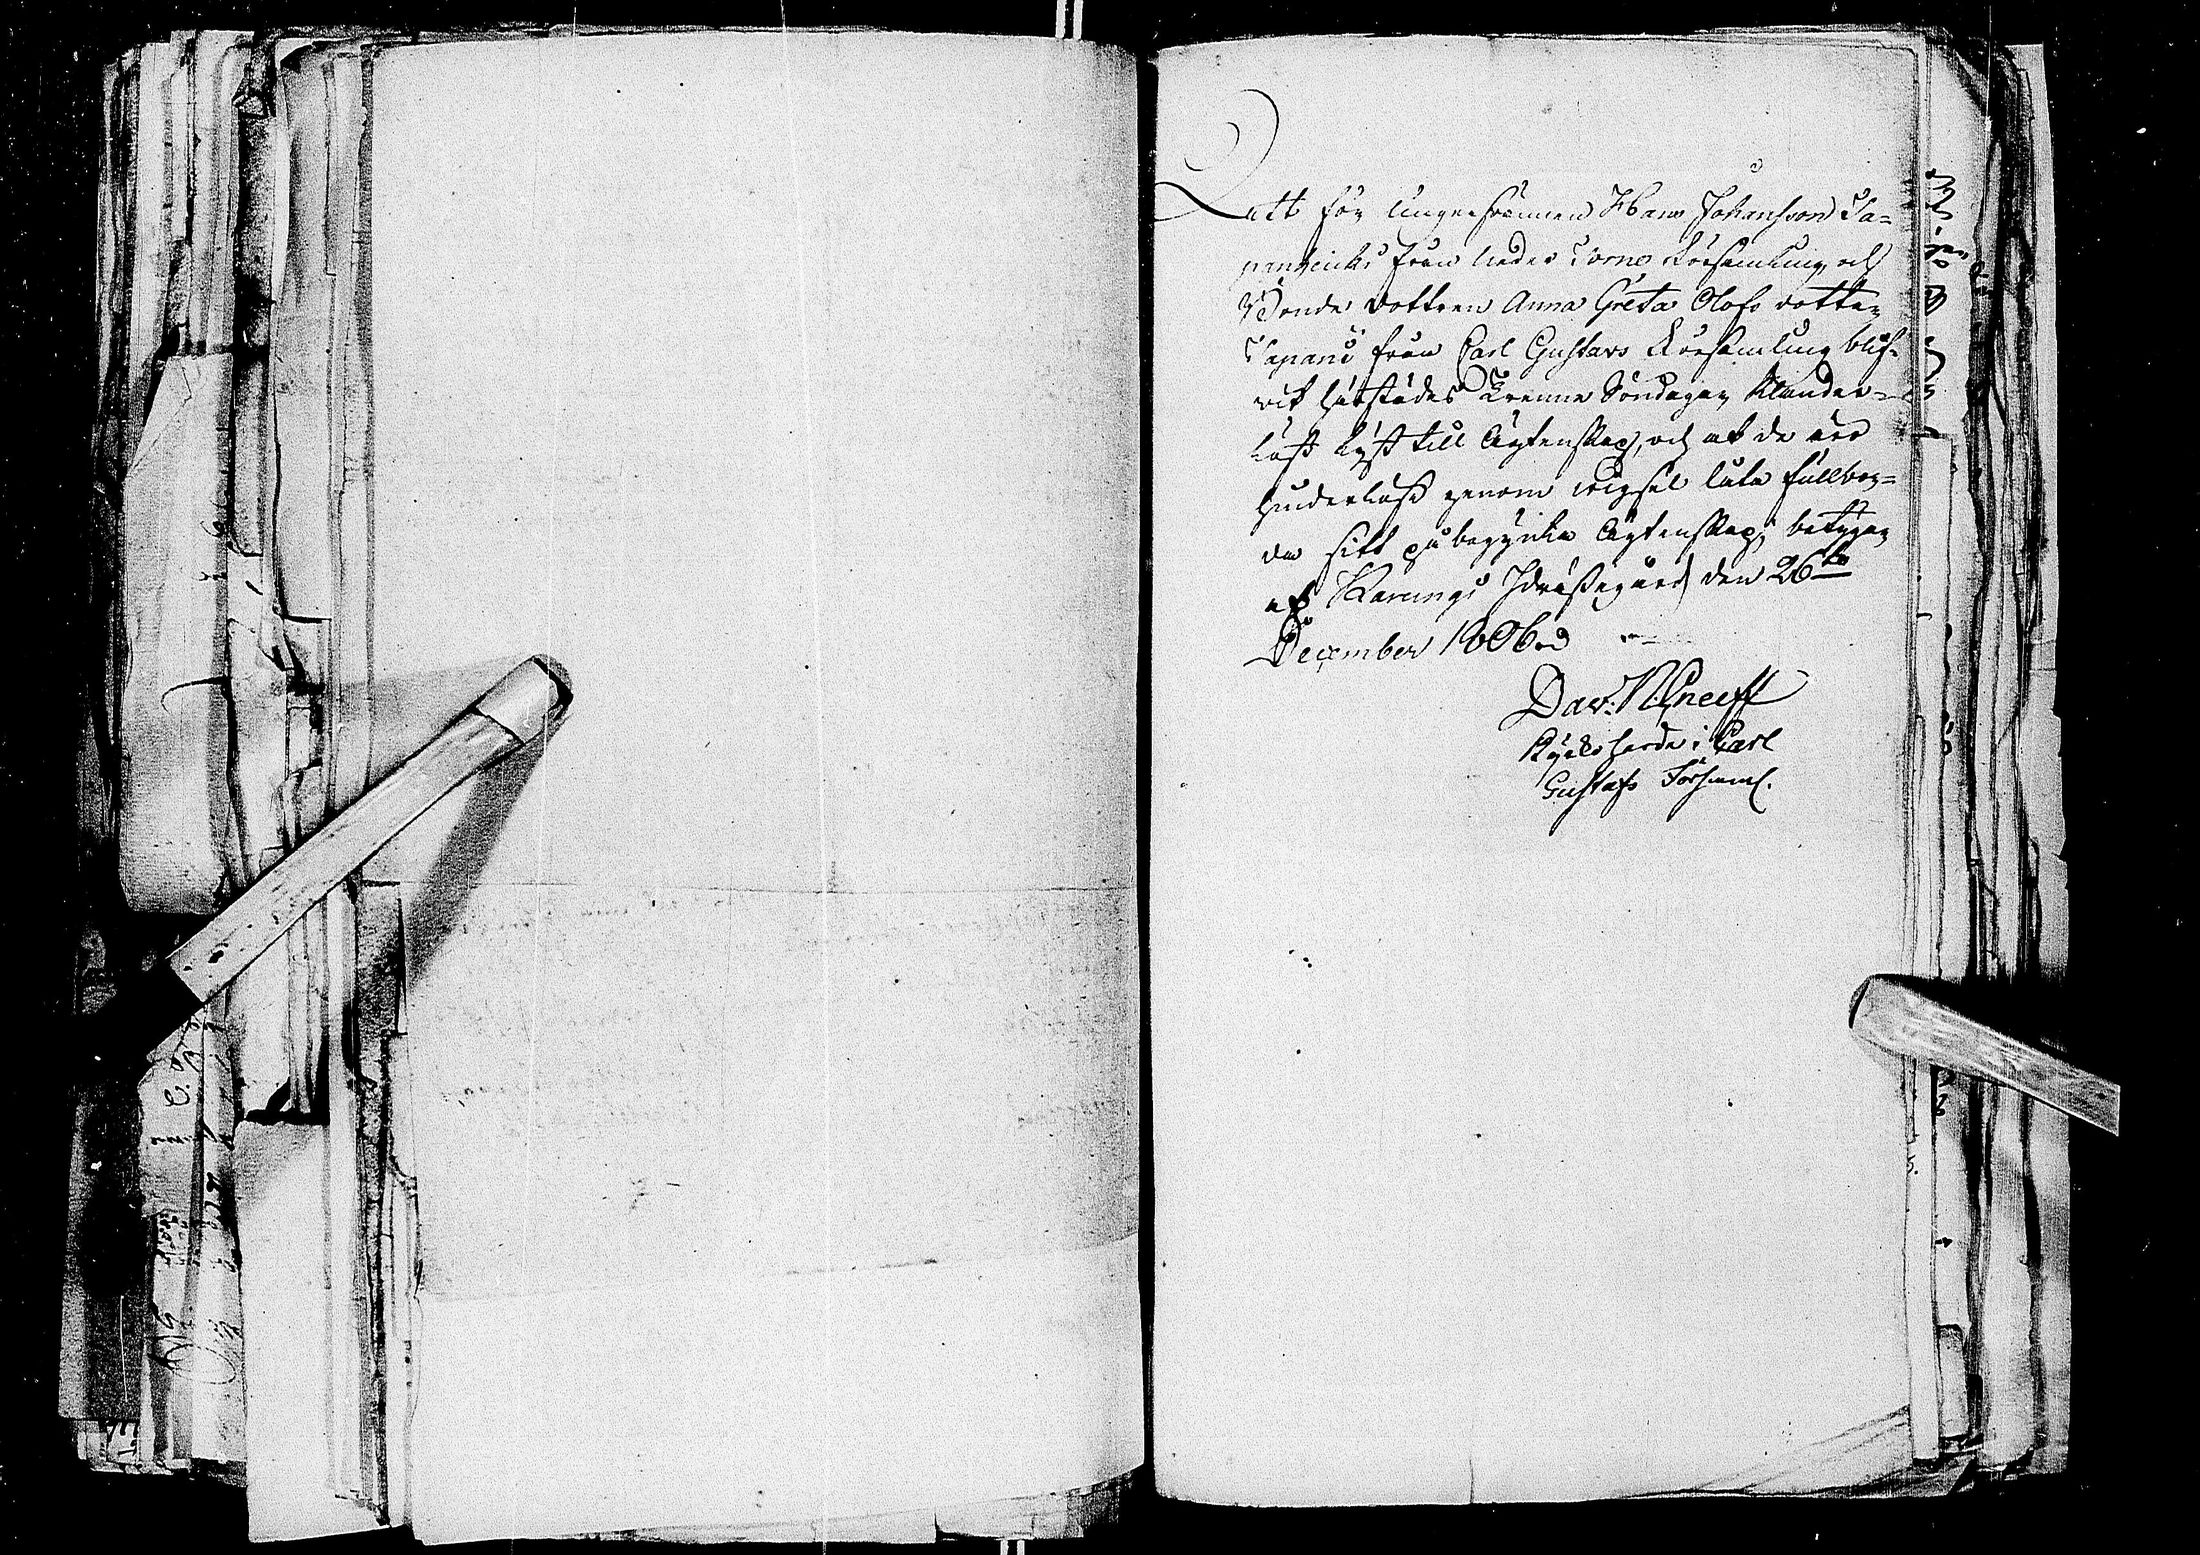 Att för Ungersvännen Hans Johansson Ta-
panheiki från neder Torne Församling, och
Bonde dottren Anna Greta Olofs dotter
Tapani från Carl Gustavs Församling blif-
vit härstädes trenne Söndagar klander-
löst lyst till Ägtenskap, och at de
hinderlöst genom wigsel låta fullbor-
da sitt påbegynta Ägtenskap; betygar
af Karungi den 26te
December 1806.
Dav: N:
Kyrko herde i Carl
Gustafs Församl.